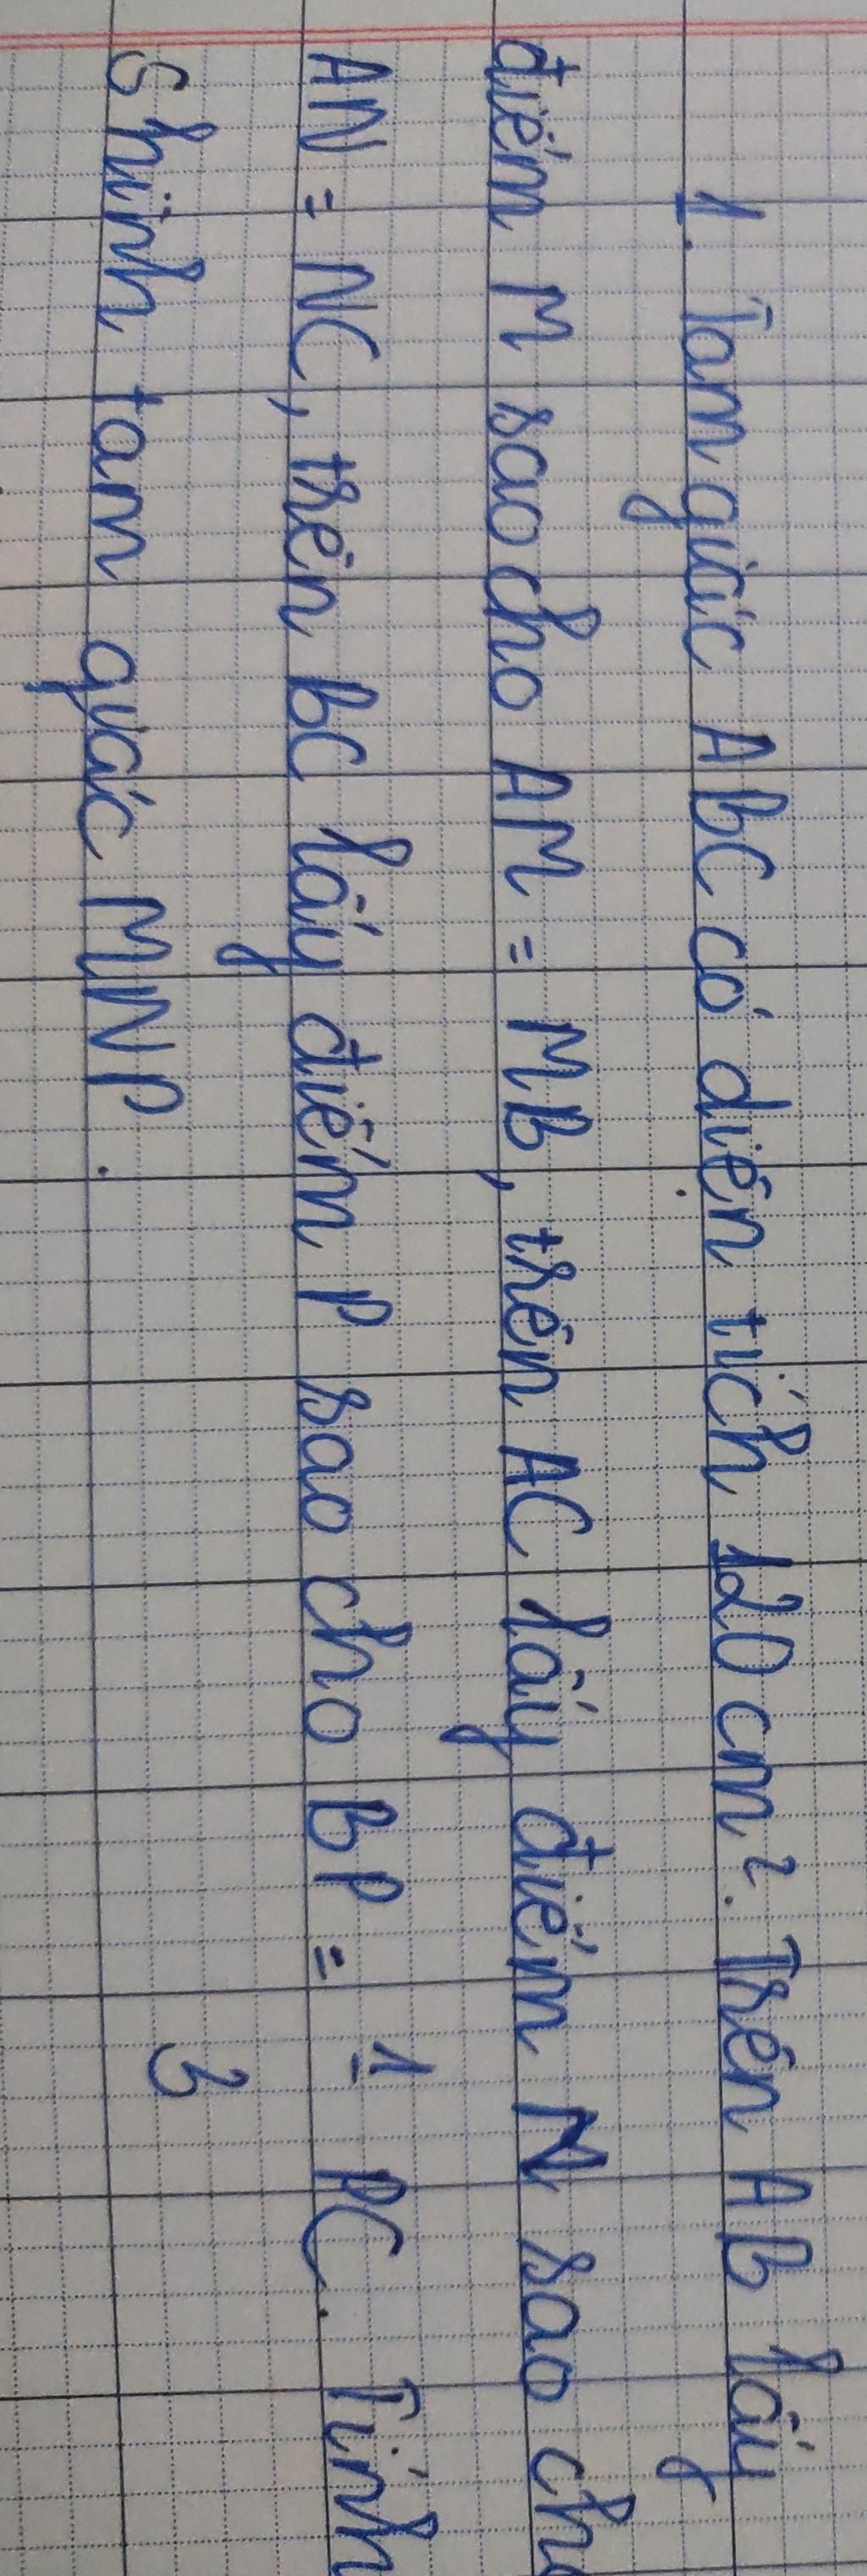 1. Tam giác ABC có diện tích 120 cm². Trên AB lấy
điểm M sao cho AM = MB, trên AC lấy điểm N sao ch
AN = NC, trên BC lấy điểm P sao cho BP = 1/3 PC. Tính
S hình tam giác MNP.